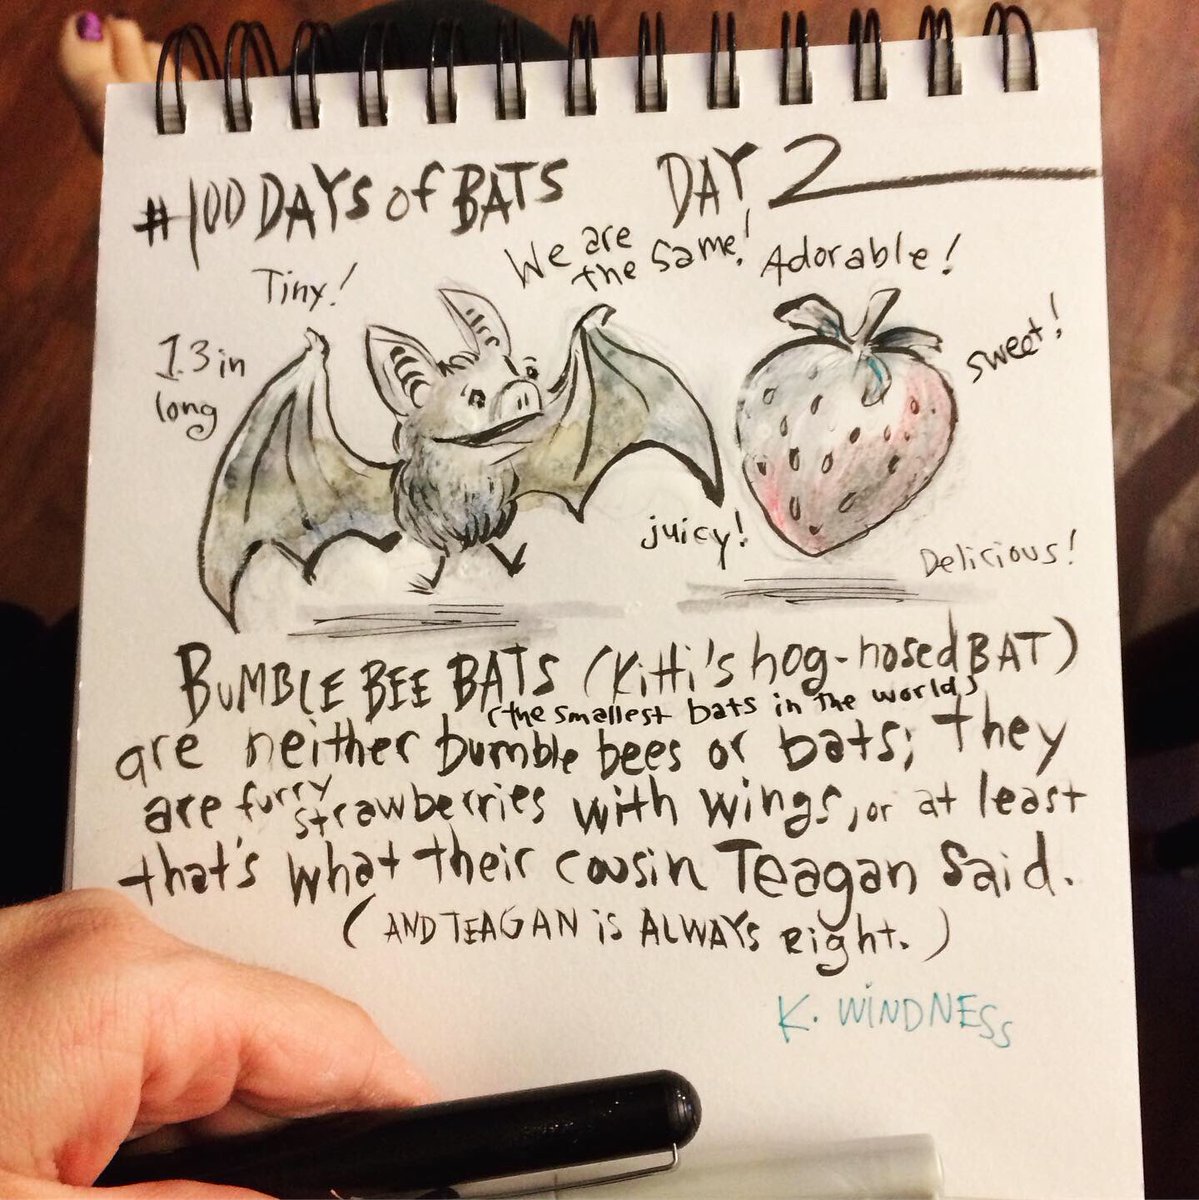 #100 DAYS of BATS DAY 2
Tiny!
We are the same!
Adorable!
1.3 in long
sweet!
juicy!
Delicious!
BUMBLE BEE BATS (Kitti's hog-nosed BAT)
(the smallest bats in the world)
are neither bumble bees or bats; they
are furry strawberries with wings, or at least
that's what their cousin Teagan Said.
(AND TEAGAN iS ALWAYS Right.)
K. WINDNESS